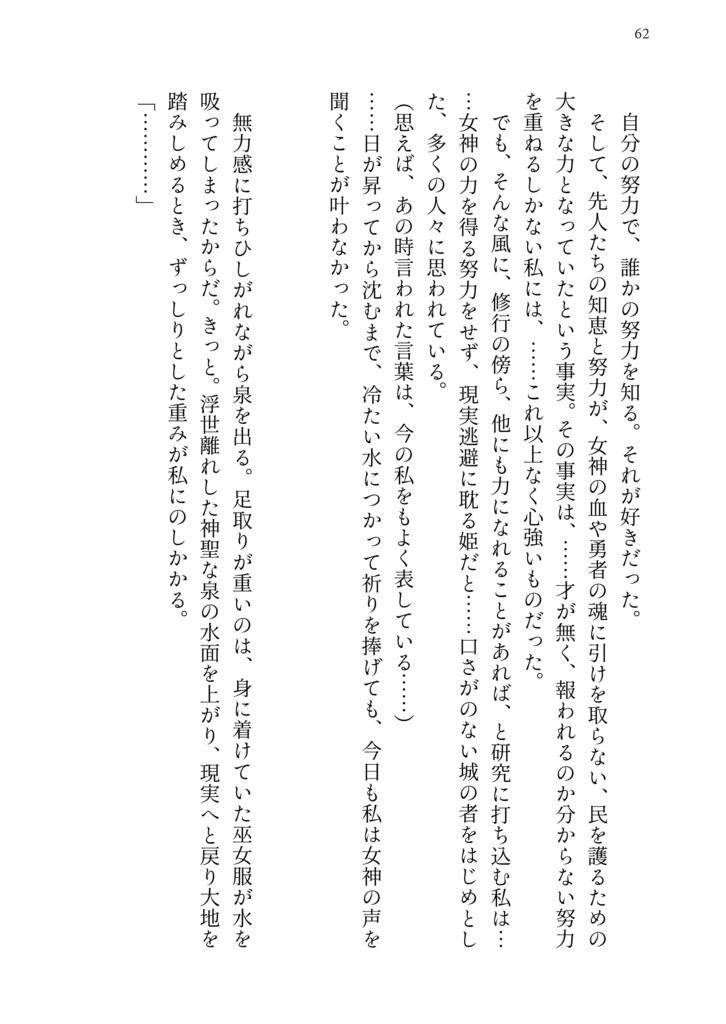 62
自分の努力で、誰かの努力を知る。それが好きだった。
そして、先人たちの知恵と努力が、女神の血や勇者の魂に引けを取らない、民を護るための
大きな力となっていたという事実。その事実は、……才が無く、報われるのか分からない努力
を重ねるしかない私には、……これ以上なく心強いものだった。
でも、そんな風に、修行の傍ら、他にも力になれることがあれば、と研究に打ち込む私は…
…女神の力を得る努力をせず、現実逃避に耽る姫だと……口さがのない城の者をはじめとし
た、多くの人々に思われている。
(思えば、あの時言われた言葉は、今の私をもよく表している……)
……日が昇ってから沈むまで、冷たい水につかって祈りを捧げても、今日も私は女神の声を
聞くことが叶わなかった。
無力感に打ちひしがれながら泉を出る。足取りが重いのは、身に着けていた巫女服が水を
吸ってしまったからだ。きっと。浮世離れした神聖な泉の水面を上がり、現実へと戻り大地を
踏みしめるとき、ずっしりとした重みが私にのしかかる。
「…………」